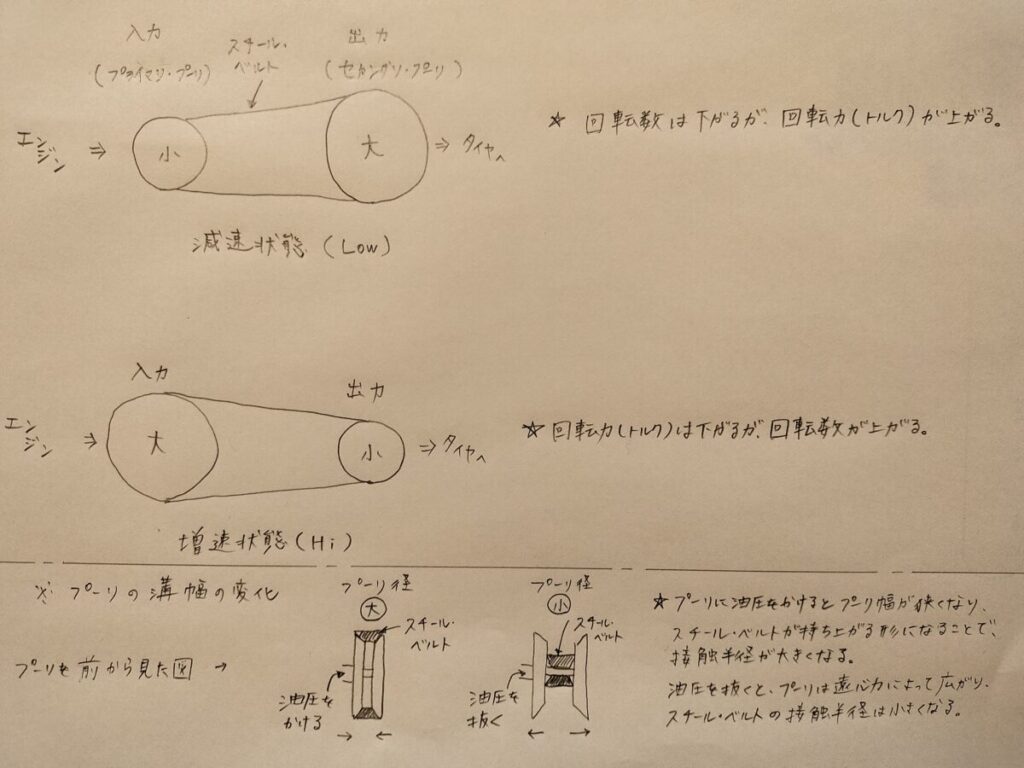 入力
出力
スチール・
ベルト
(プライマリ・プーリ)
(セカンダリ・プーリ)
エンジン
⇒
小
大
⇒タイヤへ
☆ 回転数は下がるが、回転力(トルク)が上がる。
減速状態 (Low)
入力
出力
エンジン
⇒
大
小
⇒タイヤへ
☆回転力(トルク)は下がるが、回転数が上がる。
増速状態(Hi)
※ プーリの溝幅の変化
プーリ径
大
スチール・
ベルト
プーリを前から見た図 →
油圧を
かける
→ ←
プーリ径
小
スチール・
ベルト
油圧を
抜く
← →
☆プーリに油圧をかけるとプーリ幅が狭くなり、
スチール・ベルトが持ち上がる形になることで、
接触半径が大きくなる。
油圧を抜くと、プーリは遠心力によって広がり、
スチール・ベルトの接触半径は小さくなる。